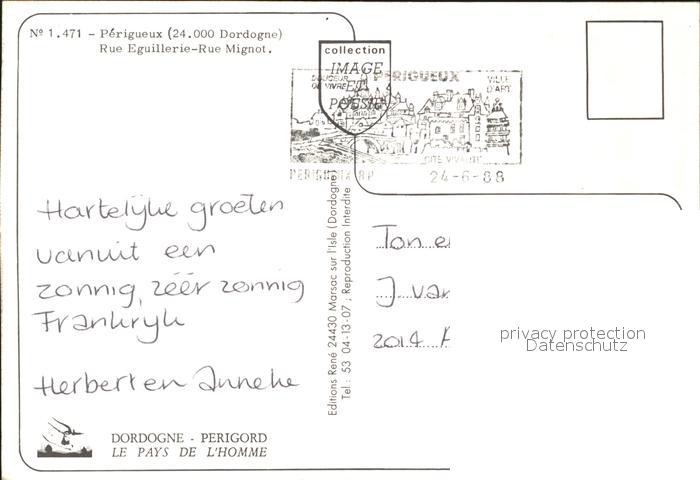 Nº 1.471 - Périgueux (24.000 Dordogne)
Rue Eguillerie-Rue Mignot.
collection
IMAGE
ET
POESIE
DOUCEUR
DE VIVRE
PERIGUEUX
VILLE
D'ART
CITE VIVANTE
PERIGUEUX RP
24-6-88
Hartelijke groeten
vanuit een
zonnig, zéér zonnig
Frankrijk
Herbert en Anneke
Editions René 24430 Marsac sur l'Isle (Dordogne)
Tel.: 53 04-13-07 ; Reproduction Interdite
Ton
J van
2014
privacy protection
Datenschutz
DORDOGNE - PERIGORD
LE PAYS DE L'HOMME